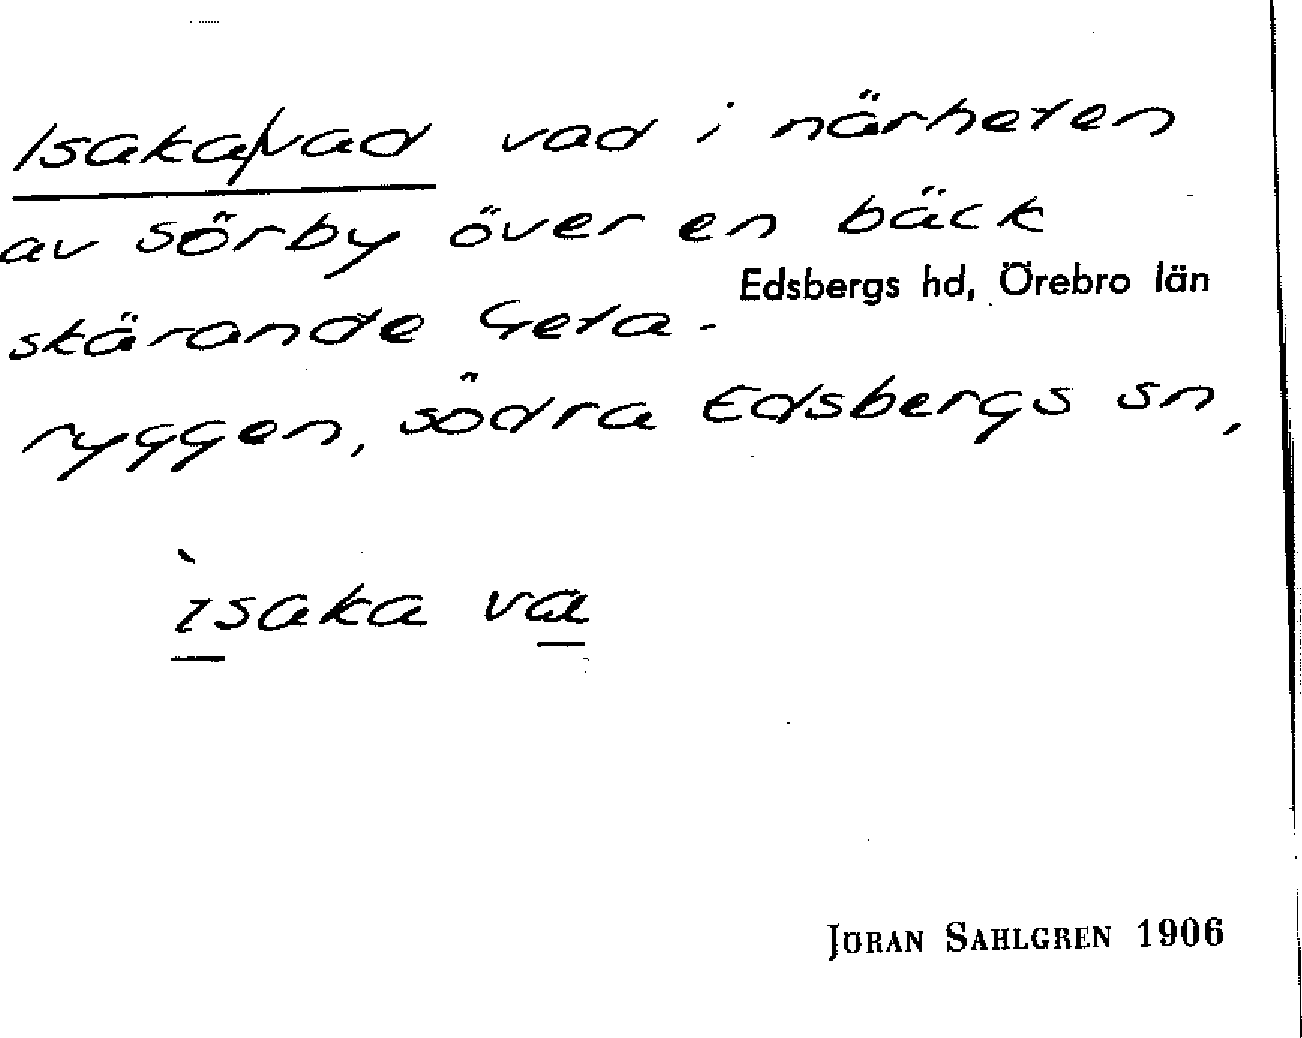 Isaka/vad vad i närheten
av Sörby över en bäck
Edsbergs hd, Örebro län
skärande Geta-
ryggen, södra Edsbergs sn,
ìsaka va
JÖRAN SAHLGREN 1906